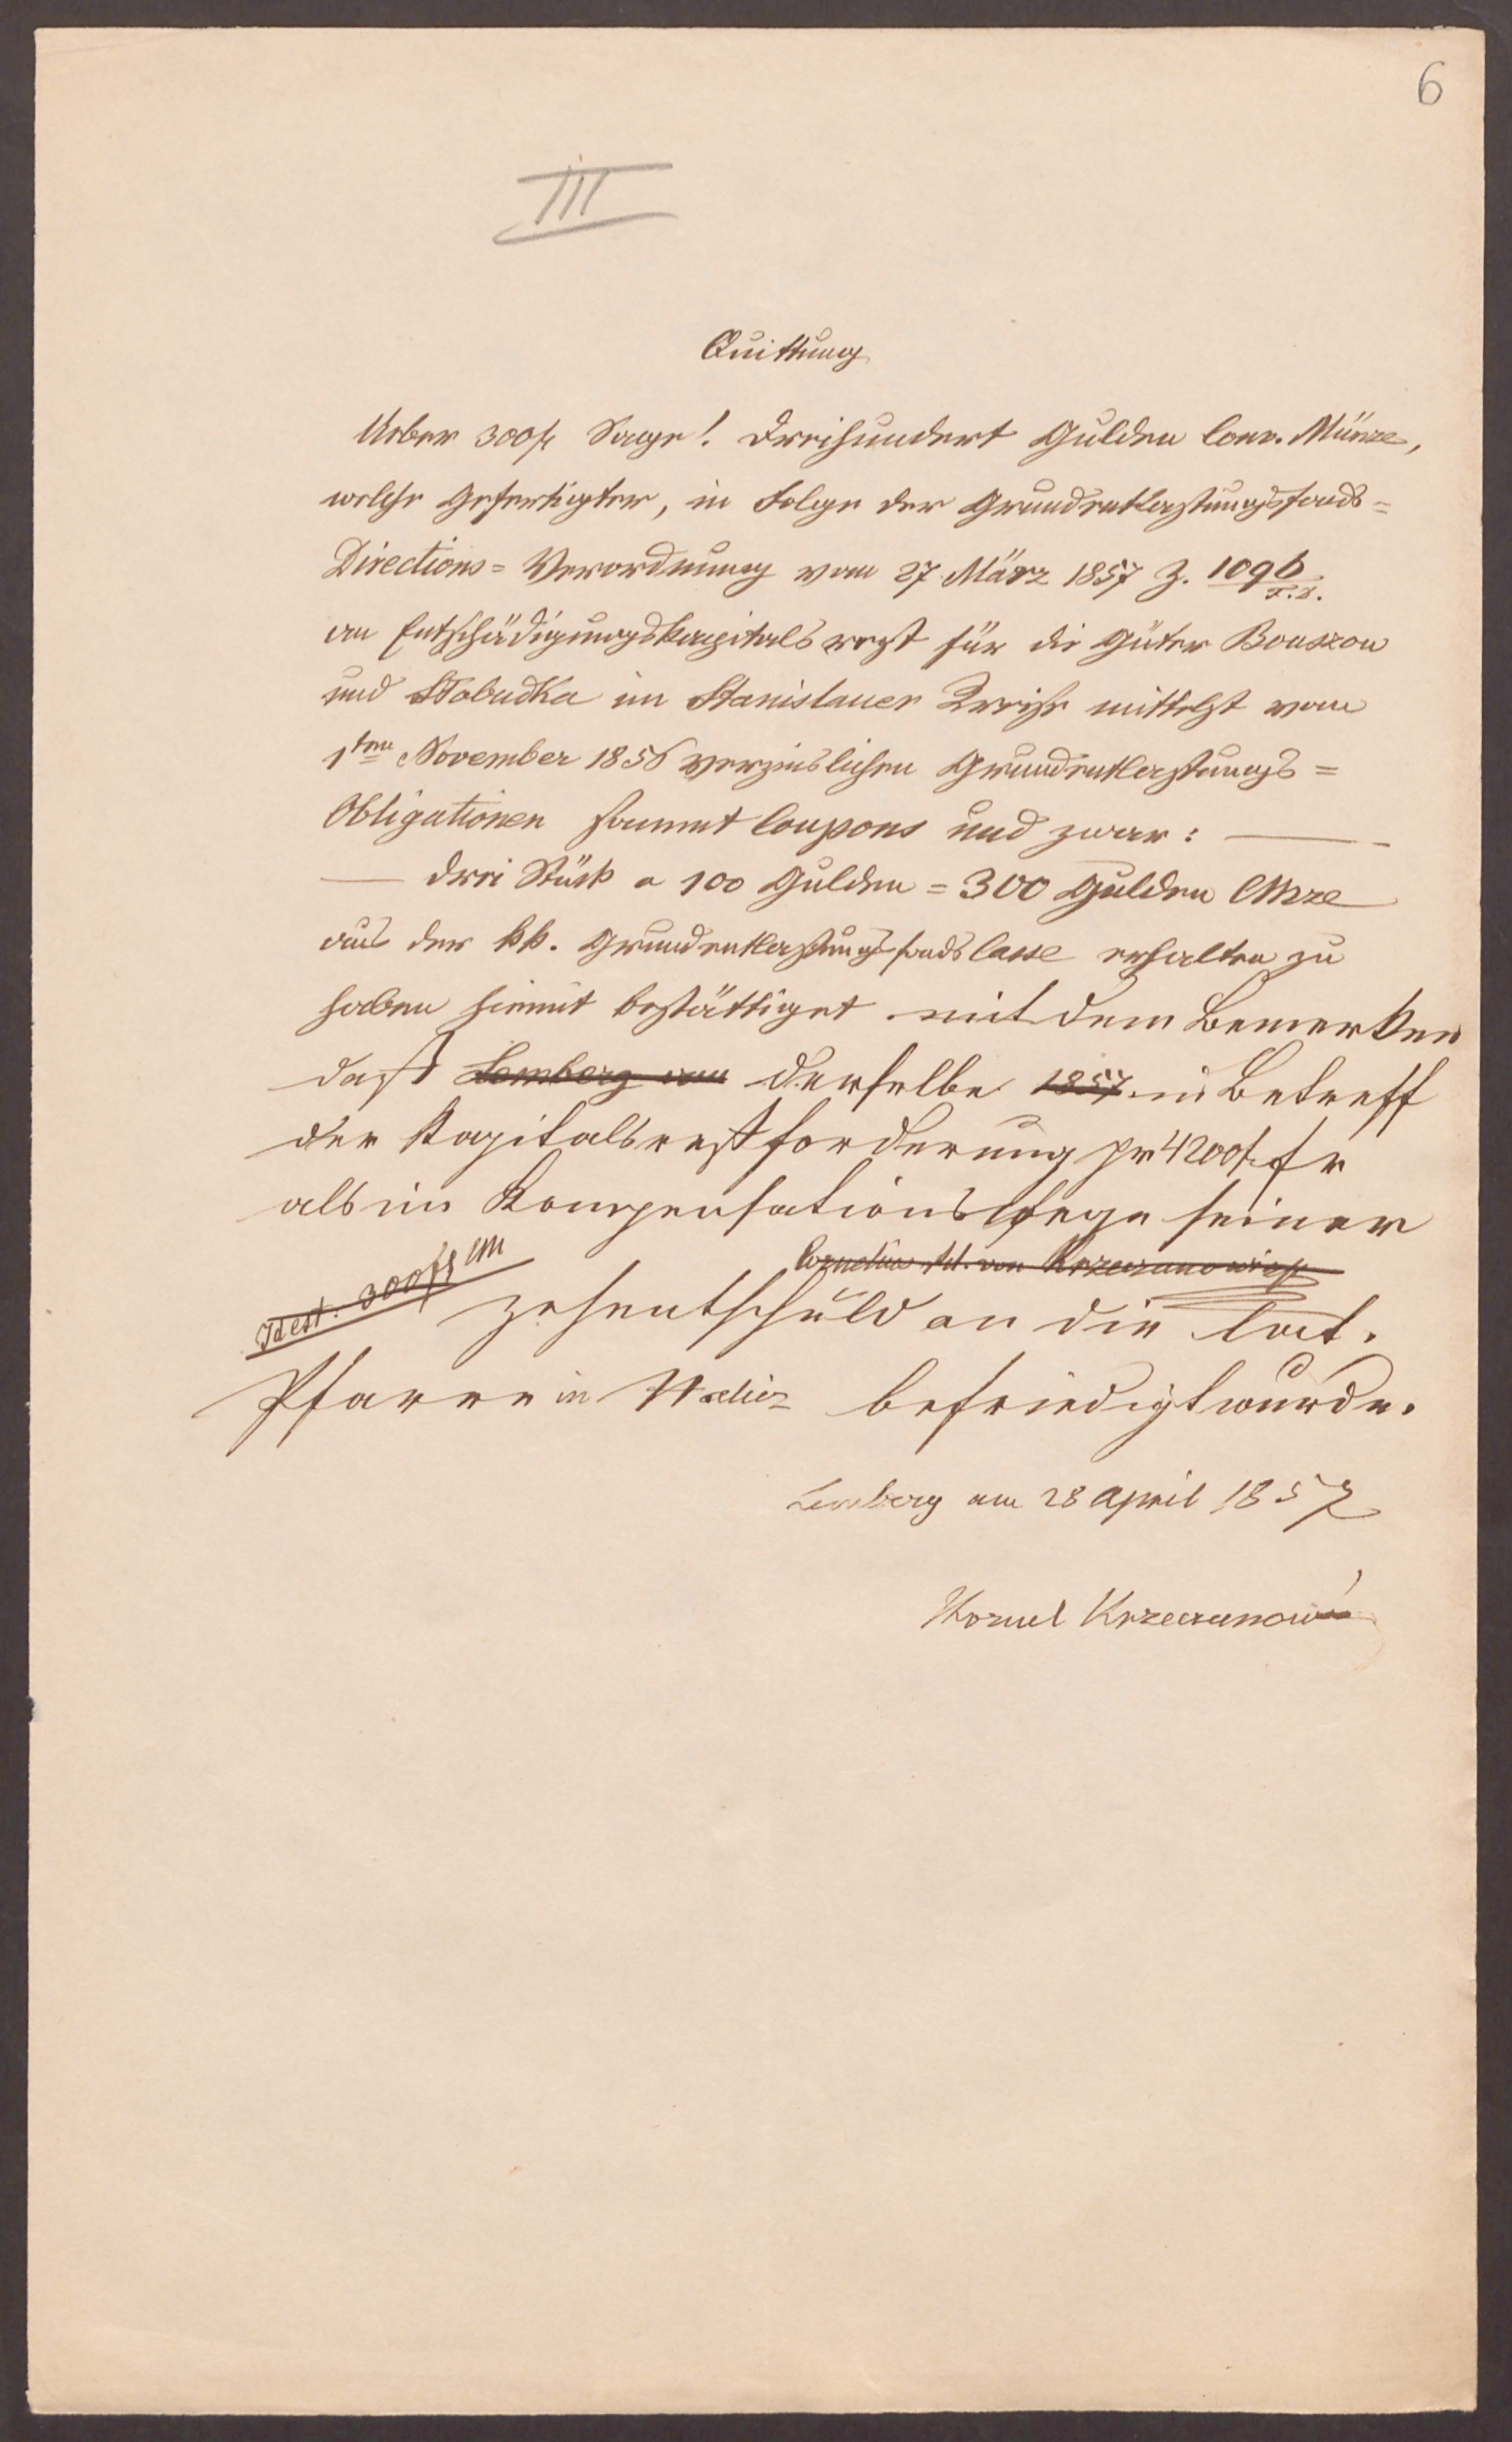 6
III
Quittung
Ueber 300 f Sage! Dreihundert Gulden Conv. Münze,
welche Gefertigter, in Folge der Grundentlastungsfonds=
Directions=Verordnung vom 27 März 1857 Z. 1096
an Entschädigungskapitalsrest für die Güter Bouszow
und Słobudka im Stanislauer Kreise mittelst vom
1ten November 1856 verzinslichen Grundentlastungs=
Obligationen sammt Coupons und zwar:
drei Stück a 100 Gulden = 300 Gulden CMze
aus der kk. Grundentlastungsfondscasse erhalten zu
haben hiemit bestättiget mit dem Bemerken
daß Lemberg am derselbe 1857 in Betreff
der Kapitalsrestforderung pr 4200 f
als im Kompensationswege seiner
Cornelius Rit. von Krzeczunowicz
Idest. 300 fl CM
Zehentschuld an die lat.
Pfarre in Halicz befriedigt wurde.
Lemberg am 28 April 1857
Kornel Krzeczunowi